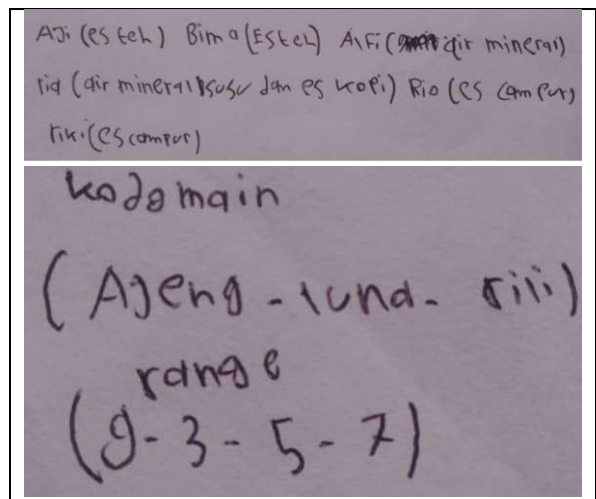 Aji (es teh) Bima (Es teh) Alfi (air mineral)
ria (air mineral susu dan es kopi) Rio (es campur)
riki (es campur)
kodomain
(Ajeng - luna - lili)
range
(9 - 3 - 5 - 7)